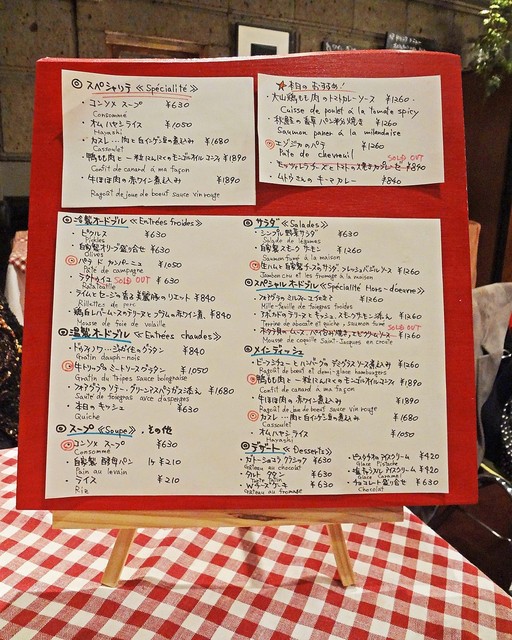 ◎ スペシャリテ ≪Spécialité≫
・コンソメ スープ ¥630
Consommé
・オム ハヤシ ライス ¥1050
Hayashi
・カスレ…肉と白インゲン豆の煮込み ¥1680
Cassoulet
・鴨もも肉と一粒にんにくのモンゴルオイルコンフィ ¥1890
Confit de canard à ma façon
・牛ほほ肉の赤ワイン煮込み ¥1890
Ragoût de joue de boeuf sauce vin rouge
★本日のおすすめ!
・大山鶏もも肉のトマトカレーソース ¥1260
Cuisse de poulet à la tomate spicy
香草パン粉分焼き ¥1260
・エゾジカのパテ ¥1260
Pâté de chevreuil
SOLD OUT
¥890
キーマカレー ¥840
◎ 冷製オードブル ≪Entrées froides≫
・ピクルス ¥630
Pickles
・自家製オリーブ盛り合せ ¥630
Olives
・パテ ド カンパーニュ ¥1050
Pâté de campagne
・ラタトゥイユ ¥630 SOLD OUT
Ratatouille
リエット ¥840
Rillettes de porc
・鶏白レバームースのテリーヌ ¥680
Mousse de foie de volaille
◎ 温製オードブル ≪Entrées chaudes≫
・ドフィノワ…じゃが芋のグラタン ¥840
Gratin dauph-nois
・牛トリップのミートソースグラタン ¥1050
Gratin du tripes sauce bolognaise
・フォアグラのソテー・グリーンアスパラガス添え ¥1680
Sauté de foiegras avec d'asperges
・本日の キッシュ ¥630
Quiche
◎ スープ ≪Soupe≫、その他
・コンソメ スープ ¥630
Consommé
・自家製 酵母パン 1ケ ¥210
Pain au levain
・ライス ¥210
Riz
◎ サラダ ≪Salades≫
・シンプル野菜サラダ ¥630
Salade de légumes
・自家製スモークサーモン ¥1260
Saumon fumé à la maison
・生ハムと自家製チーズのサラダ・フレッシュバジルソース ¥1260
Jambon cru et les fromage à la maison
◎ スペシャルオードブル ≪Spécialité Hors-d'oeuvre≫
・フォアグラのミルフィーユ仕立て ¥1260
Mille-feuille de foiegras froides
・アボカドのテリーヌとキッシュ、スモークサーモン添え ¥1260
Terrine de abocate et quiche, saumon fumé
SOLD OUT
¥1260
Mousse de coquille Saint-Jacques en croûte
◎ メインディッシュ
・ビーフシチューとハンバーグのデミグラスソース煮込み ¥1260
Ragoût de boeuf et demi-glace hamburgers
・鴨もも肉と一粒にんにくのモンゴルオイルコンフィ ¥1890
Confit de canard à ma façon
・牛ほほ肉の赤ワイン煮込み ¥1890
Ragoût de joue de boeuf sauce vin rouge
・カスレ…肉と白インゲン豆の煮込み ¥1680
Cassoulet
・オム ハヤシ ライス ¥1050
Hayashi
◎ デザート ≪Desserts≫
・ガトーショコラ クラシック ¥630
Gâteau au chocolat
・タルト タタン ¥630
Tarte Tatin
・Wチーズケーキ ¥630
Gâteau au fromage
・ピスタチオアイスクリーム ¥420
Glace Pistache
・塩キャラメル アイスクリーム ¥420
Glace Caramel
・チョコレート盛り合せ ¥630
Chocolat